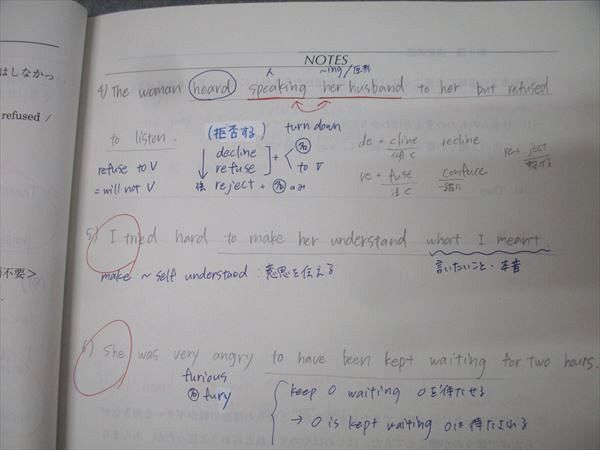 はしなかっ
refused /
不要＞
NOTES
人 ~ing/原形
4) The woman heard speaking her husband to her but refused
to listen.
(拒否する) turn down
refuse to V
= will not V
decline
refuse
強 reject + 名 のみ
+ 名
to V
de + cline
recline
re + fuse
confuse
re + ject
5) I tried hard to make her understand what I meant.
make ~ self understood : 意思を伝える
言いたいこと・本音
6) She was very angry to have been kept waiting for two hours.
furious
名 fury
keep O waiting Oを待たせる
→ O is kept waiting Oは待たされる